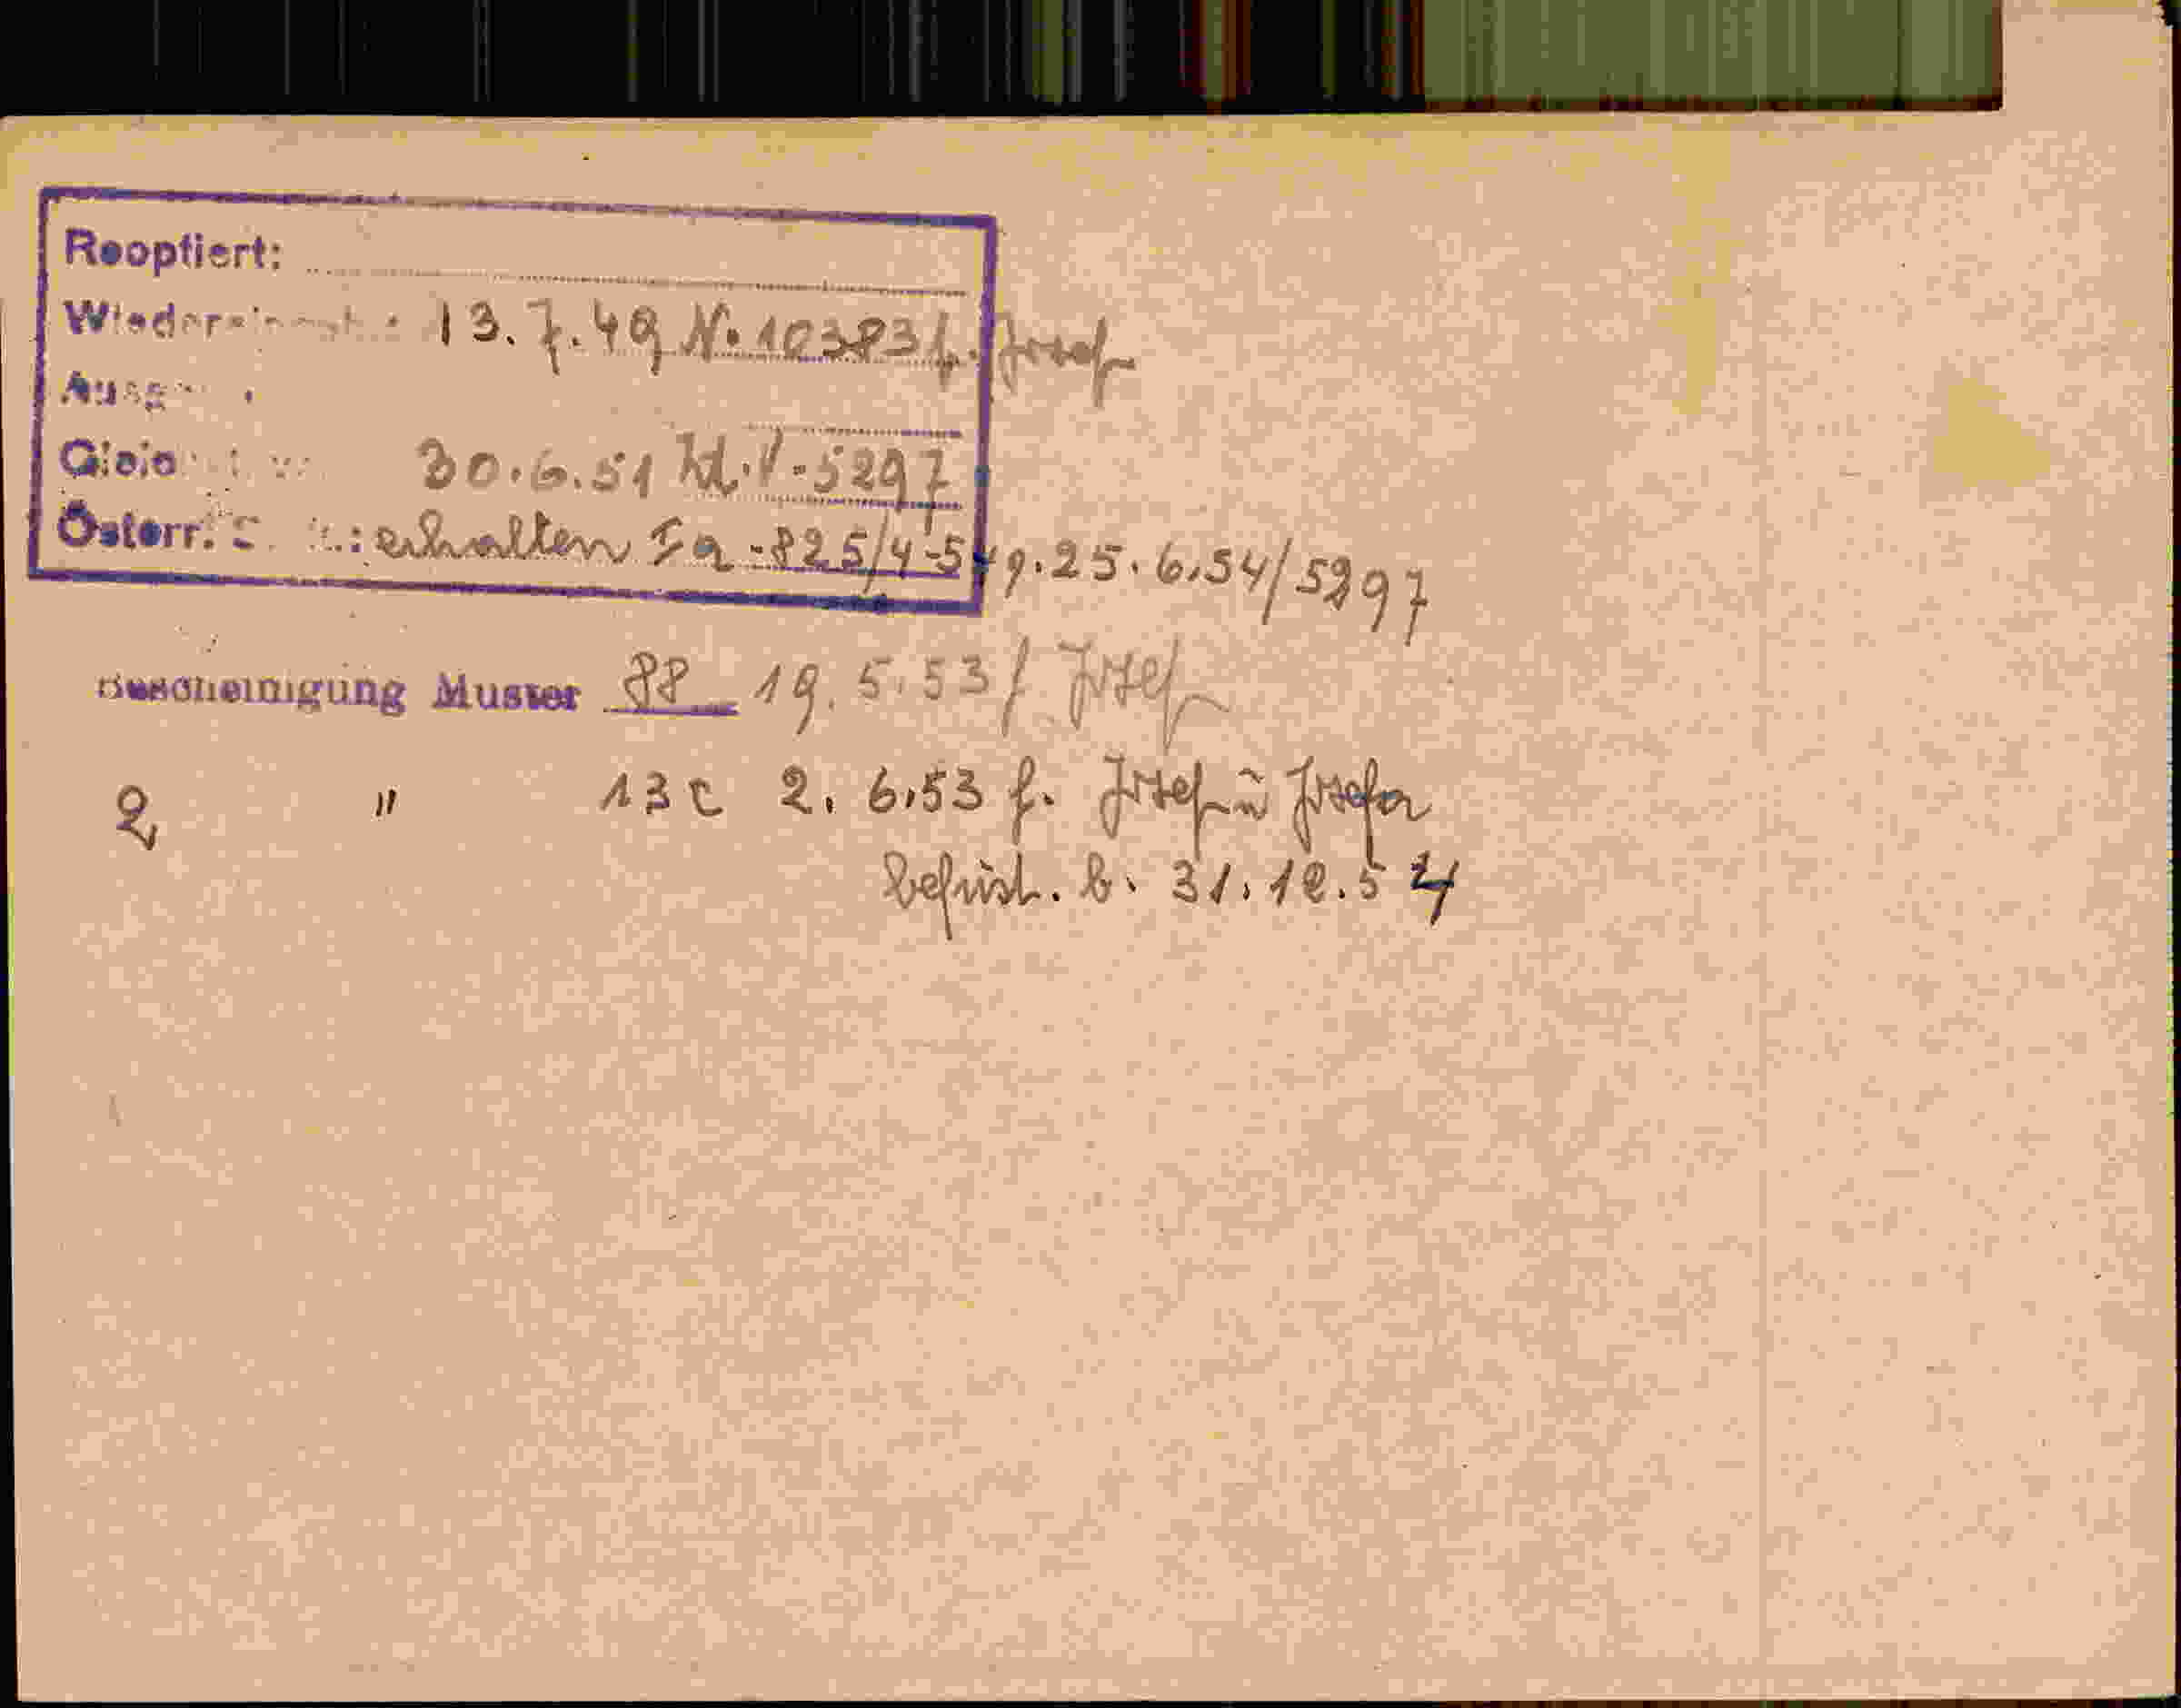 Reoptiert:
13.7.49 N. 10383 f. Josef
30.6.51 5297
Österr. erhalten Ia-825/4-54 v. 25.6.54/5297
Bescheinigung Muster 88 19.5.53 / Josef
2 " 13c 2.6.53 f. Josef u Josefa
befrist. b. 31.12.54